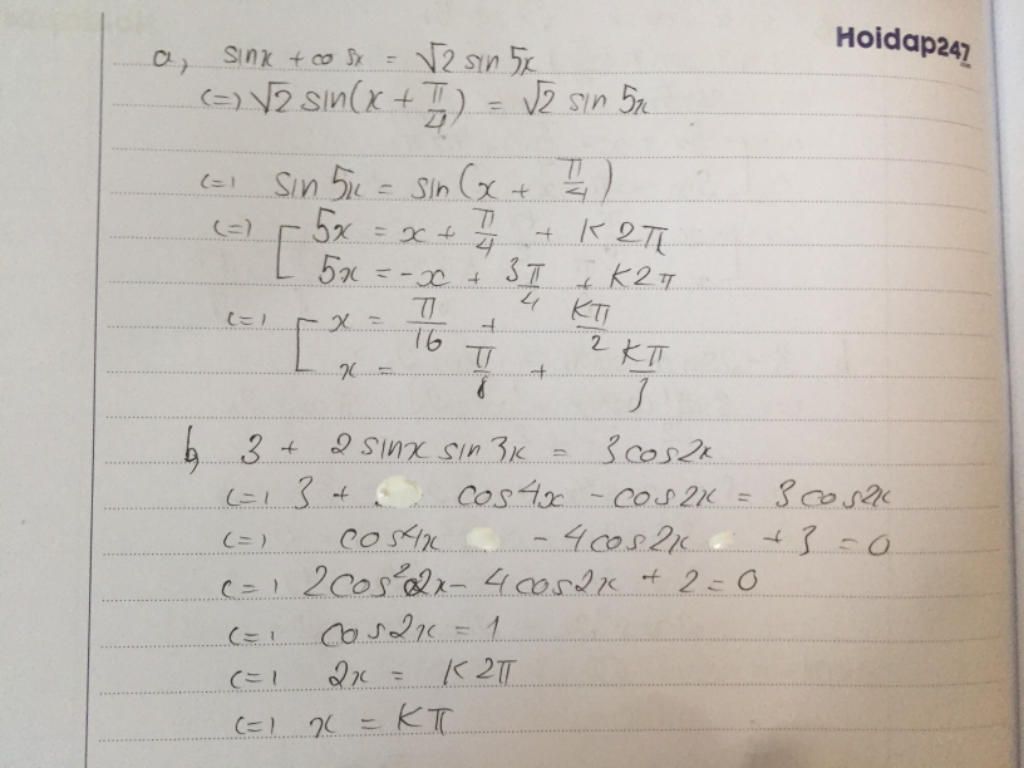 Hoidap247
a, sinx + cosx = √2 sin 5x
(=) √2 sin(x + π/4) = √2 sin 5x
(=) sin 5x = sin(x + π/4)
(=) [ 5x = x + π/4 + K2π
5x = -x + 3π/4 + K2π
(=) [ x = π/16 + Kπ/2
x = π/8 + Kπ/3
b, 3 + 2 sinx sin 3x = 3cos2x
(=) 3 + cos4x - cos2x = 3cos2x
(=) cos4x - 4cos2x + 3 = 0
(=) 2cos²2x - 4cos2x + 2 = 0
(=) cos2x = 1
(=) 2x = K2π
(=) x = Kπ